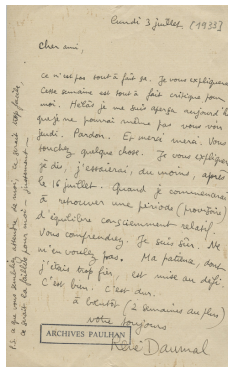 lundi 3 juillet [1933]
cher ami,
ce n'est pas tout à fait ça. Je vous expliquerai
Cette semaine est tout à fait critique pour
moi. Hélas je me suis aperçu aujourd'hui
que je ne pourrai même pas vous voir
jeudi. Pardon. Et merci merci. Vous
touchez quelque chose. Je vous expliquerai
je dis, j'essaierai, du moins, après
le 16 juillet. Quand je commencerai
à retrouver une période (provisoire)
d'équilibre consciemment relatif.
Vous comprendrez. J'en suis sûr. Ne
m'en voulez pas. Ma patience, dont
j'étais trop fier, est mise au défi.
C'est bien. C'est dur.
à bientôt (2 semaines au plus)
votre toujours
René Daumal
ARCHIVES PAULHAN
P.S. ce que vous semblez attendre de moi, ce serait trop facile,
ce serait la facilité pour moi — justement —